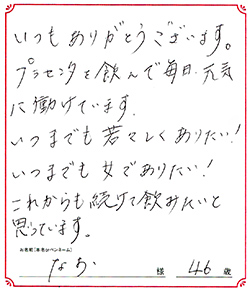 いつもありがとうございます。
プラセンタを飲んで毎日、元気
に働けています.
いつまでも若々しくありたい!
いつまでも女でありたい!
これからも続けて飲みたいと
思っています。
お名前[本名orペンネーム]
なお 様 46 歳